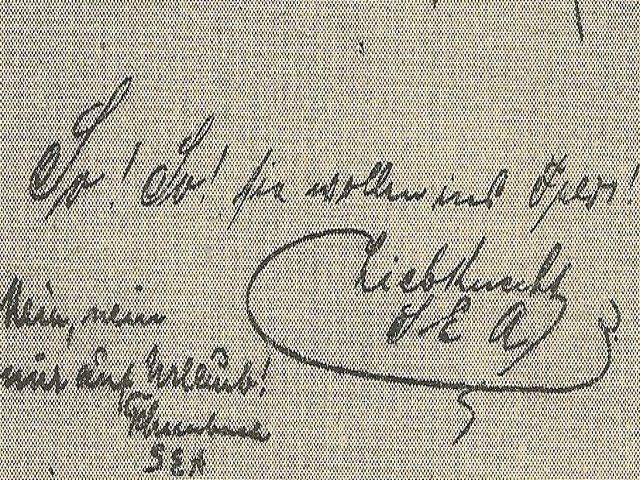 So! So! sie wollen ins Feld!
Liebknecht
S E A
Nein, nein
nur auf Urlaub!
S E A